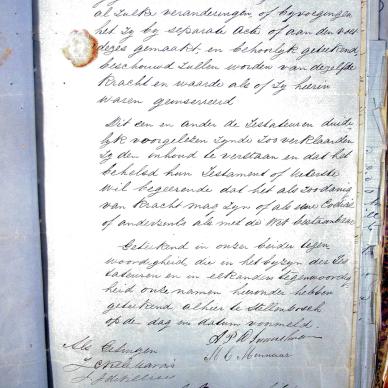 al zulke veranderingen, of byvoegingen
het zy by separate Acte of aan den voet
dezes gemaakt, en behoorlyk geteekend
beschouwd zullen worden van dezelfde
kracht en waarde als of zy hierin
waren geinsereerd
Dit een en ander de Testateuren duide
lyk voorgelezen zynde zoo verklaarden
zy den inhoud te verstaan en dat het
behelsd hun Testament of uiterste
wil begeerende dat het als zoodanig
van kracht mag zyn of als een Codicil
of anderzints als met de Wet bestaanbaar
Geteekend in onzer beider tegen
woordigheid, die in het byzyn der Tes
tateuren en in elkanders tegenwoordig
heid onze namen hieronder hebben
geteekend alhier te Stellenbosch
op den dag en datum voormeld.
As Getuigen